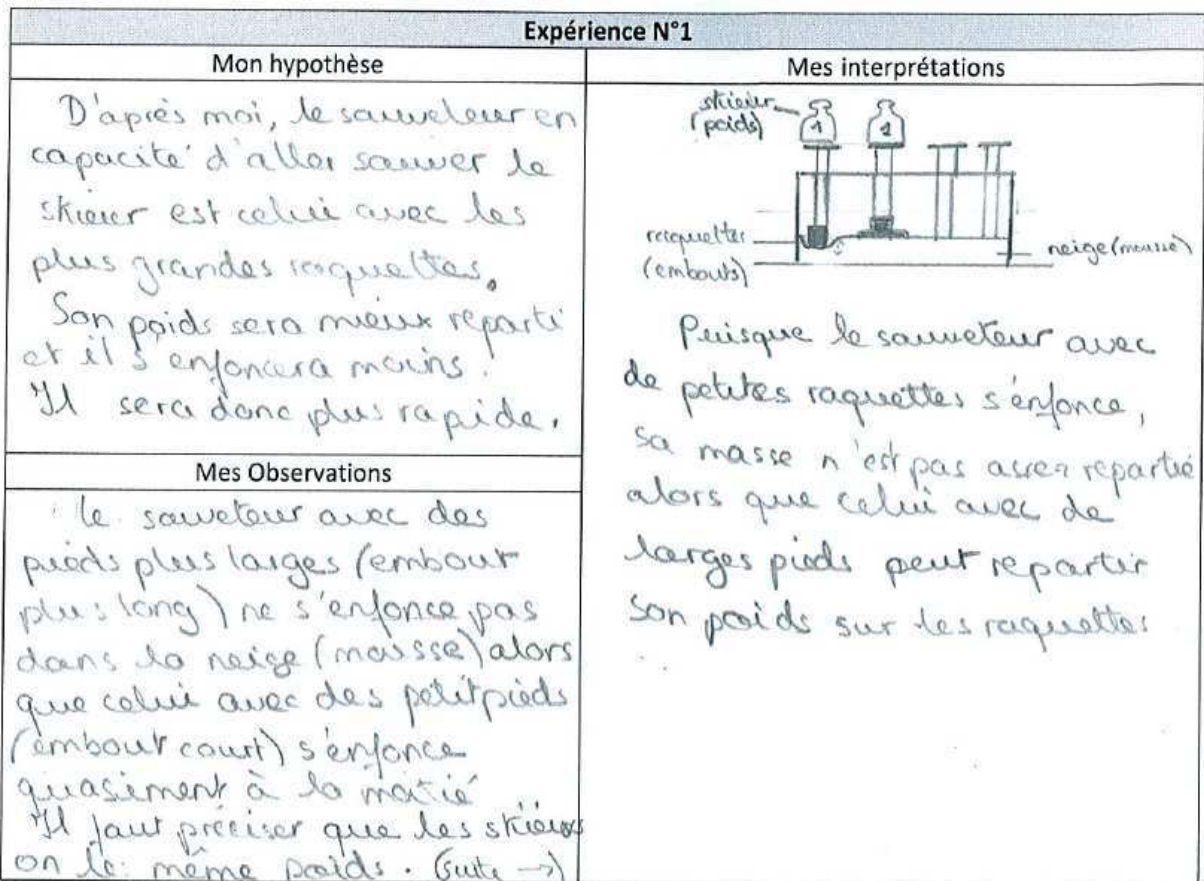 Expérience N°1
Mon hypothèse
D'après moi, le sauveteur en
capacité d'aller sauver le
skieur est celui avec les
plus grandes raquettes.
Son poids sera mieux réparti
et il s'enfoncera moins.
Il sera donc plus rapide.
Mes Observations
le sauveteur avec des
pieds plus larges (embout
plus long) ne s'enfonce pas
dans la neige (mousse) alors
que celui avec des petit pieds
(embout court) s'enfonce
quasiment à la moitié
Il faut préciser que les skieurs
on le même poids. (suite →)
Mes interprétations
skieur
(poids)
1
1
raquettes
(embouts)
neige (mousse)
Puisque le sauveteur avec
de petites raquettes s'enfonce,
sa masse n'est pas assez repartie
alors que celui avec de
larges pieds peut repartir
son poids sur les raquettes